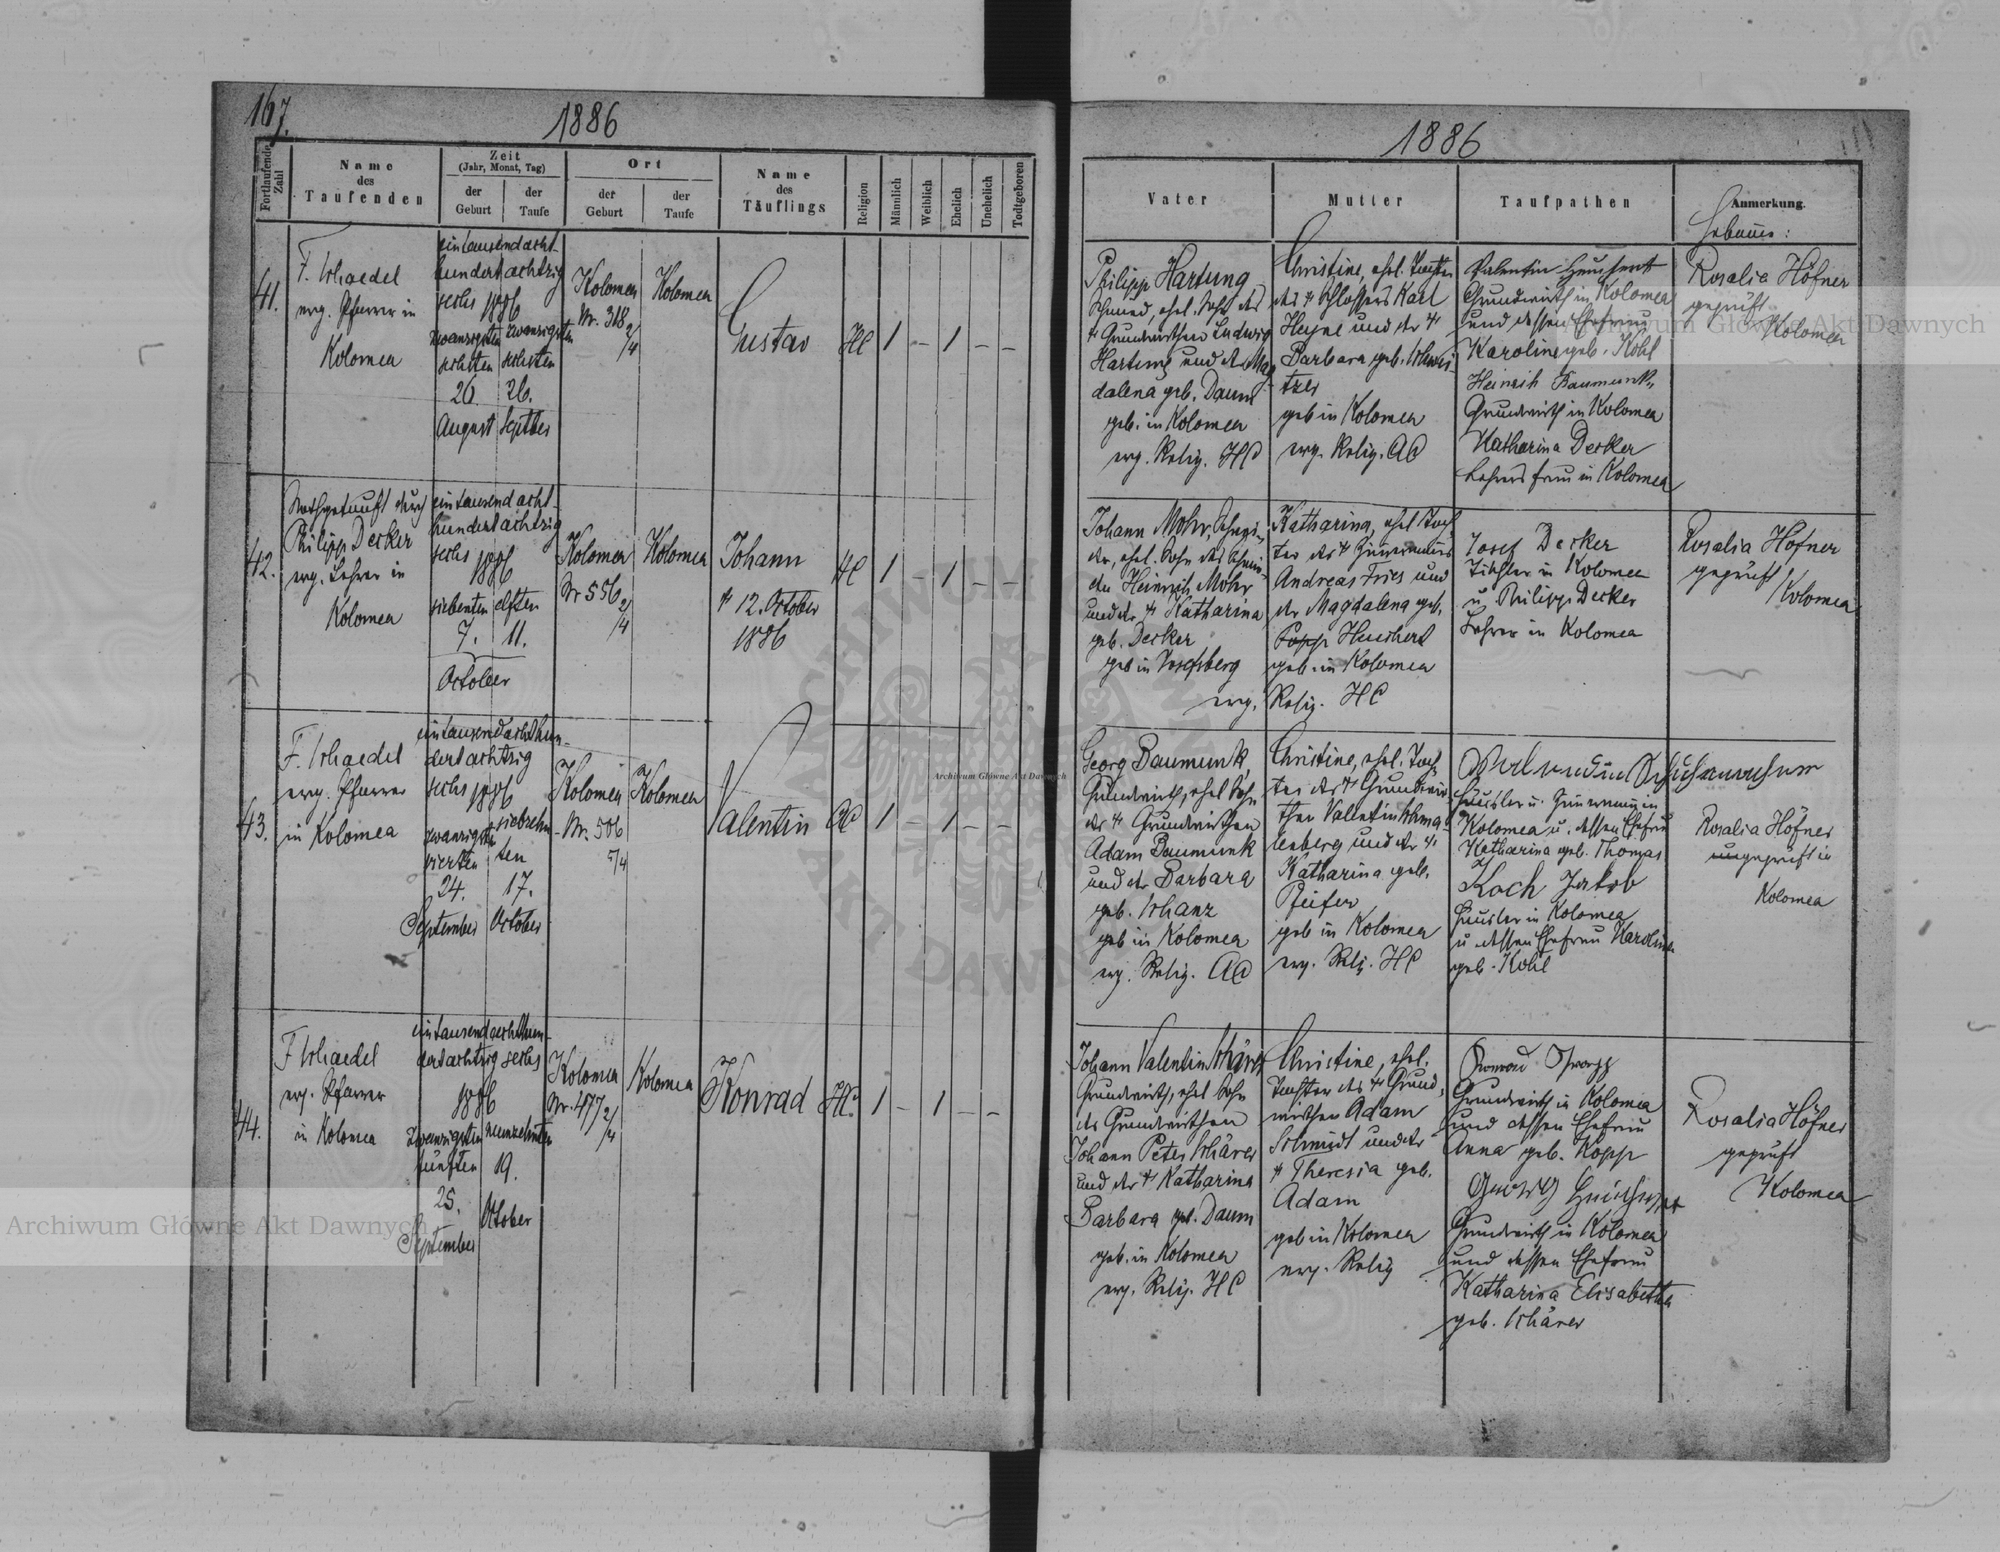 167.
1886
Fortlaufende Zahl
Name des Taufenden
Zeit
(Jahr, Monat, Tag)
der Geburt
der Taufe
Ort
der Geburt
der Taufe
Name des Täuflings
Religion
Männlich
Weiblich
Ehelich
Unehelich
Todtgeboren
41.
F. Schaedel
evg. Pfarrer in
Kolomea
eintausendacht-
hundertachtzig
sechs 1886
zwanzigsten zwanzigsten
sechsten sechsten
26. 26.
August Septber
Kolomea
Nr. 318 2/4
Kolomea
Gustav
HC
1 – 1 – –
42.
Nothgetauft durch
Philipp Decker
evg. Lehrer in
Kolomea
eintausendacht-
hundertachtzig
sechs 1886
siebenten elften
7. 11.
October
Kolomea
Nr 556 2/4
Kolomea
Johann
† 12. October
1886
HC
1 – 1 – –
43.
F. Schaedel
evg. Pfarrer
in Kolomea
eintausendachthun-
dertachtzig
sechs 1886
zwanzigsten siebzehn-
vierten ten
24. 17.
September October
Kolomea
Nr. 506
5/4
Kolomea
Valentin
AC
1 – 1 – –
44.
F Schaedel
evg. Pfarrer
in Kolomea
eintausendachthun-
dertachtzig sechs
1886
zwanzigsten neunzehnten
fünften 19.
25.
September October
Kolomea
Nr. 477 2/4
Kolomea
Konrad
HC.
1 – 1 – –
1886
Vater
Mutter
Taufpathen
Anmerkung.
Hebamme:
Philipp Hartung
Schmied, ehel. Sohn des
† Grundwirthen Ludwig
Hartung und der Mag-
dalena geb. Daum
geb. in Kolomea
evg. Relig. HC
Christine, ehel. Tochter
des † Schlossers Karl
Heyne und der †
Barbara geb. Schwei-
tzer
geb in Kolomea
evg. Relig. AC
Valentin Heuchert
Grundwirth in Kolomea
und dessen Ehefrau
Karoline geb. Kohl
Heinrich Baumunk,
Grundwirth in Kolomea
Katharina Decker
Lehrersfrau in Kolomea
Rosalia Höfner
geprüft
Kolomea
Johann Mohr, Schnei-
der, ehel. Sohn des Schnei-
ders Heinrich Mohr
und der † Katharina
geb. Decker
geb in Josefsberg
evg. Relig. HC
Katharina, ehel Toch-
ter des † Zimmermanns
Andreas Fries und
der Magdalena geb.
Popp Heuchert
geb. in Kolomea
Josef Decker
Tischler in Kolomea
u. Philipp Decker
Lehrer in Kolomea
Rosalia Höfner
geprüft
Kolomea
Georg Baumunk,
Grundwirth, ehel Sohn
des † Grundwirthen
Adam Baumunk
und der Barbara
geb. Schanz
geb in Kolomea
evg. Relig. AC
Christine, ehel. Toch-
ter des † Grundwir-
then Vallentin Schma-
lenberg und der †
Katharina geb.
Pfeifer
geb in Kolomea
evg. Relig. HC
Häusler u. Zimmermann in
Kolomea u. dessen Ehefrau
Katharina geb. Thomas
Koch Jakob
Häusler in Kolomea
u dessen Ehefrau Karolina
geb. Kohl
Rosalia Höfner
ungeprüft in
Kolomea
Johann Valentin Schärer
Grundwirth, ehel Sohn
des Grundwirthen
Johann Peter Schärer
und der † Katharina
Barbara geb. Daum
geb. in Kolomea
evg. Relig. HC
Christine, ehel.
Tochter des † Grund-
wirthen Adam
Schmidt und der
† Theresia geb.
Adam
geb in Kolomea
evg. Relig
Konrad
Grundwirth in Kolomea
und dessen Ehefrau
Anna geb. Kopp
Grundwirth in Kolomea
und dessen Ehefrau
Katharina Elisabetha
geb. Schärer
Rosalia Höfner
geprüft
Kolomea
Archiwum Główne Akt Dawnych
Archiwum Główne Akt Dawnych
Archiwum Główne Akt Dawnych